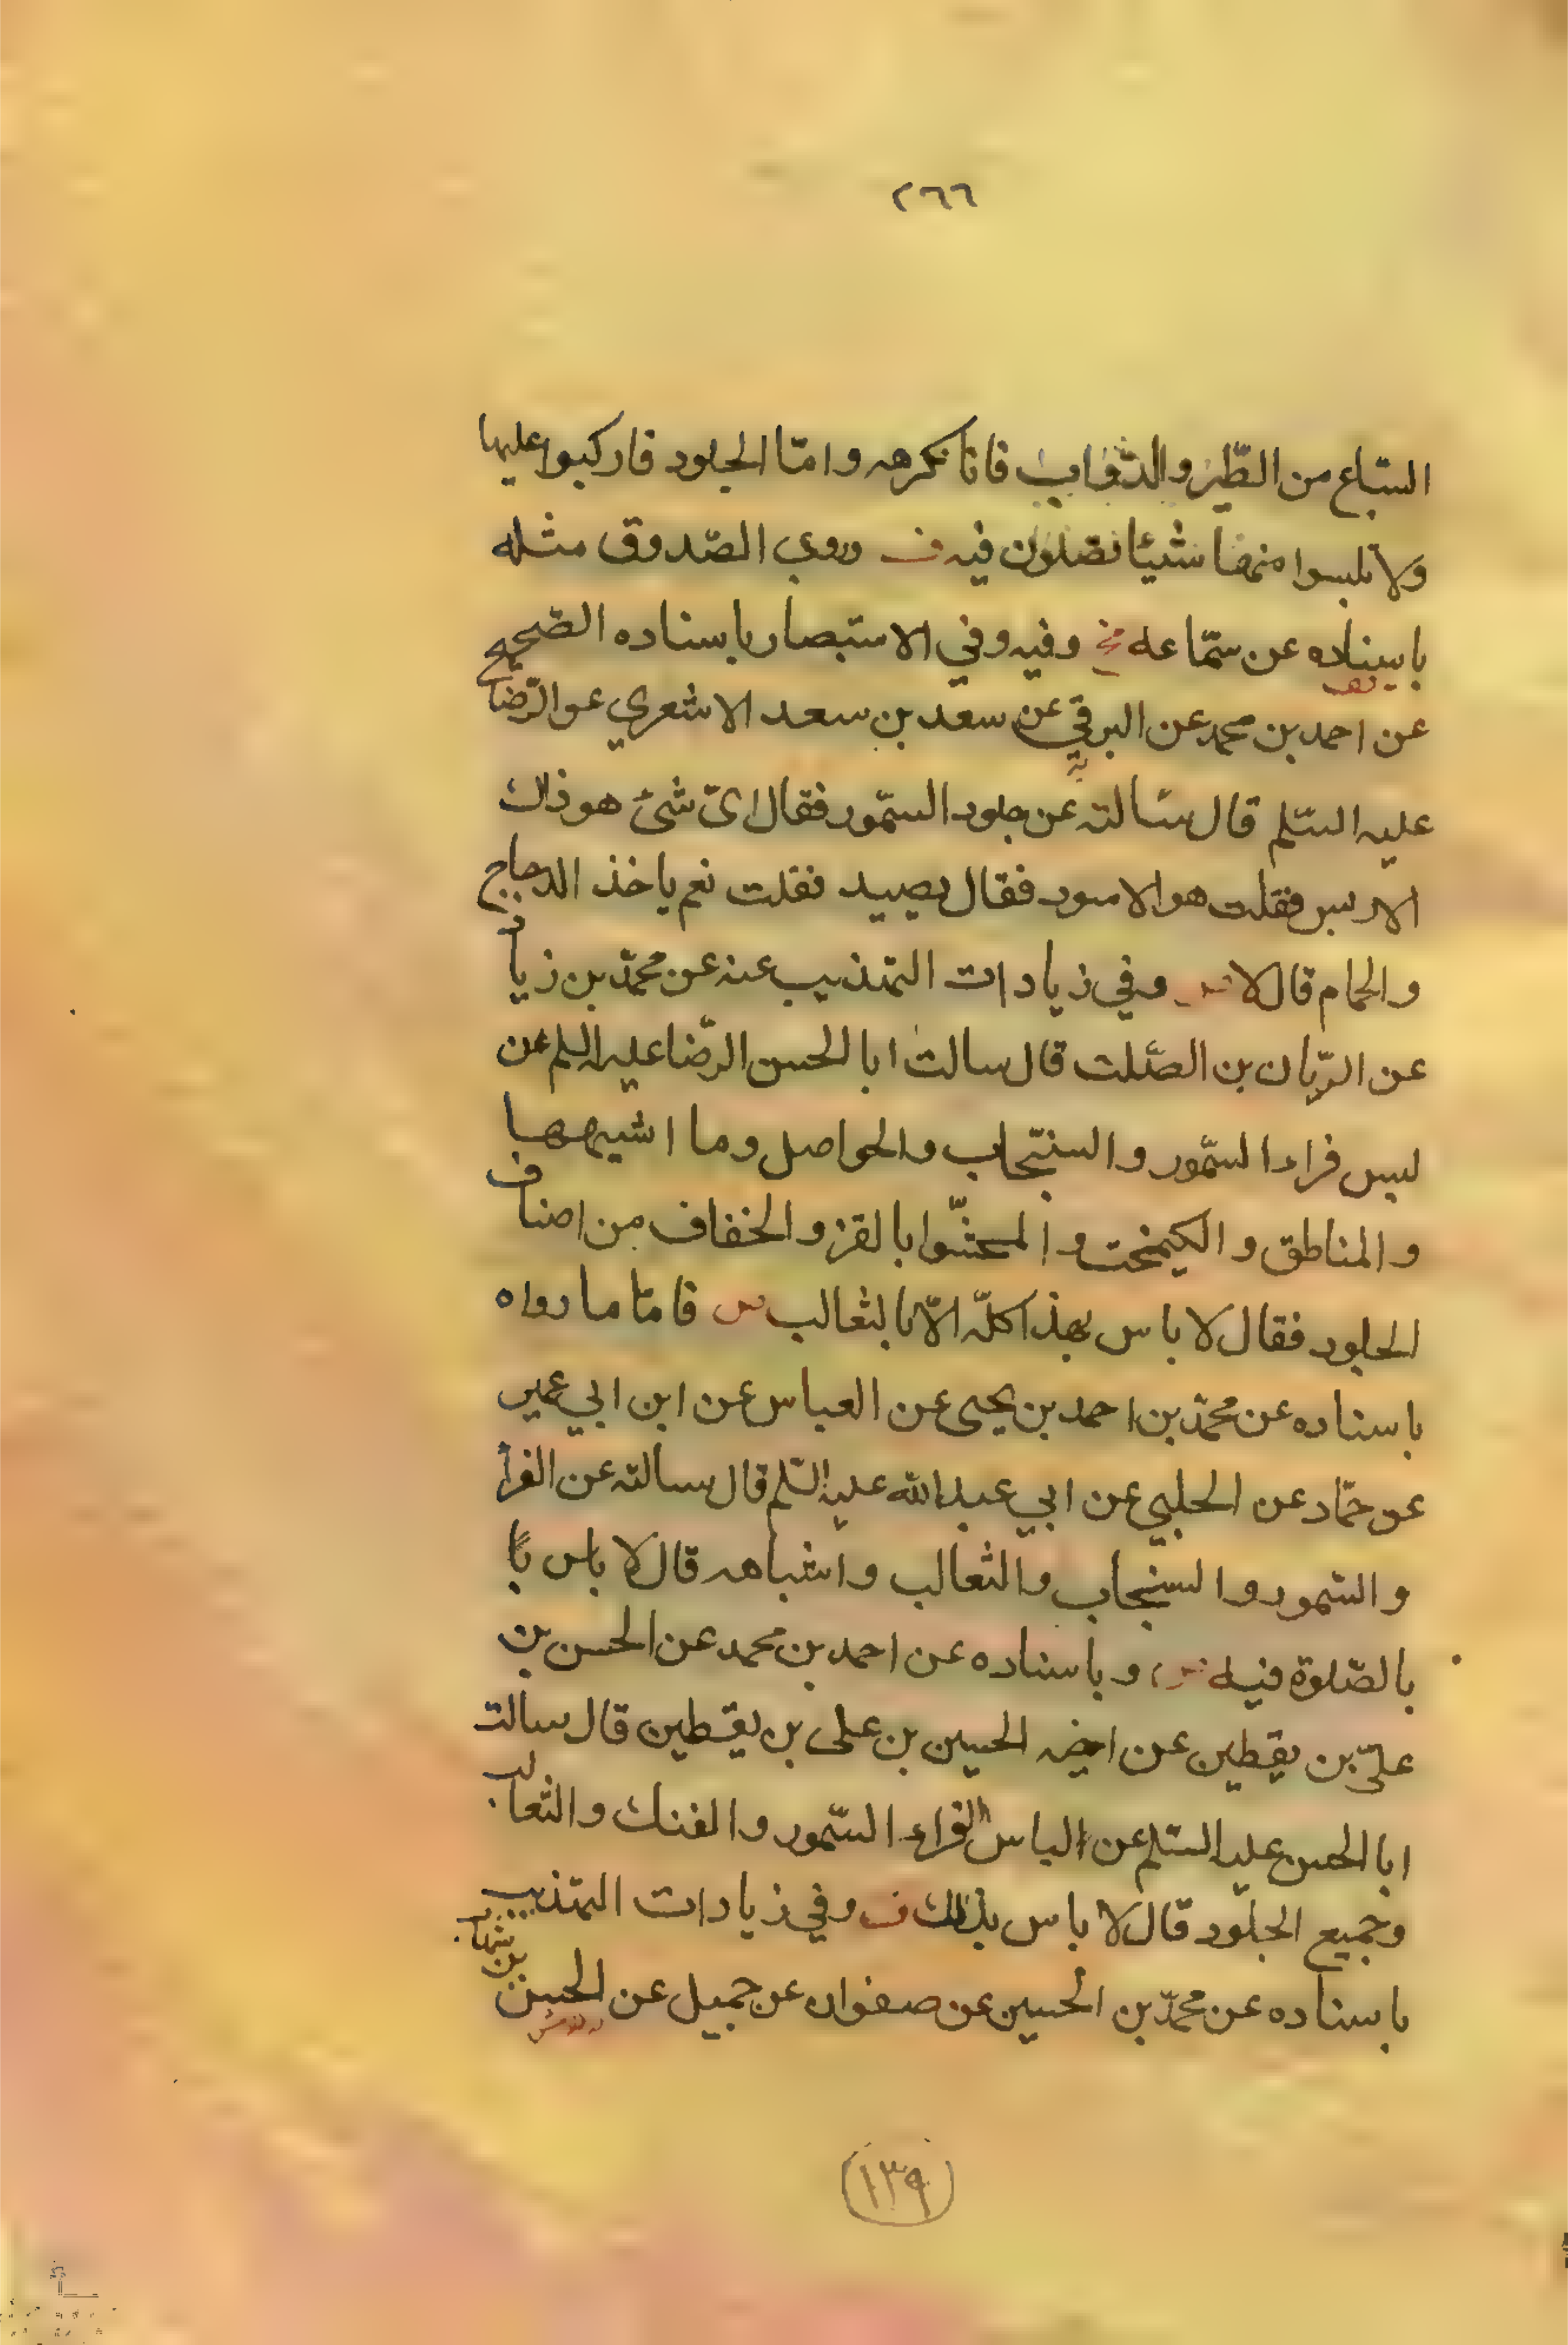 ٢٦٦
السّباع من الطّير والدّوابّ فانا نكرهه وامّا الجلود فاركبوا عليها
ولا تلبسوا منها شيئا تصلّون فيه ف وروي الصّدوق مثله
باسناده عن سمّاعه وفيه وفي الاستبصار باسناده الصّحيح
عن احمد بن محمد عن البرقي عن سعد بن سعد الاشعري عن الرّضا
عليه السّلم قال سالته عن جلود السّمور فقال ايّ شئ هو ذاك
الادبس فقلت هو الاسود فقال يصيد فقلت نعم ياخذ الدجاج
والحمام قال لا وفي زيادات التهذيب عنه عن محمّد بن زياد
عن الرّيان بن الصّلت قال سالت ابا الحسن الرّضا عليه السلم عن
لبس فراء السّمور والسنّجاب والحواصل وما اشبهها
والمناطق والكيمخت والمحشّوا بالقز والخفاف من اصناف
الجلود فقال لا باس بهذا كلّه الّا بالثعالب س فامّا ما رواه
باسناده عن محمّد بن احمد بن يحيى عن العباس عن ابن ابي عمير
عن حمّاد عن الحلبي عن ابي عبد الله عليه السّلم قال سالته عن الفرا
والسّمور والسنجاب والثعالب واشباهه قال لا باس با
بالصّلوة فيه وباسناده عن احمد بن محمد عن الحسن بن
عليّ بن يقطين عن اخيه الحسين بن على بن يقطين قال سالت
ابا الحسن عليه السّلم عن الباس الفراء السّمور والفنك والثعالب
وجميع الجلود قال لا باس بذلك ف وفي زيادات التهذيب
باسناده عن محمّد بن الحسين عن صفوان عن جميل عن الحسن بن شهاب
١٣٩